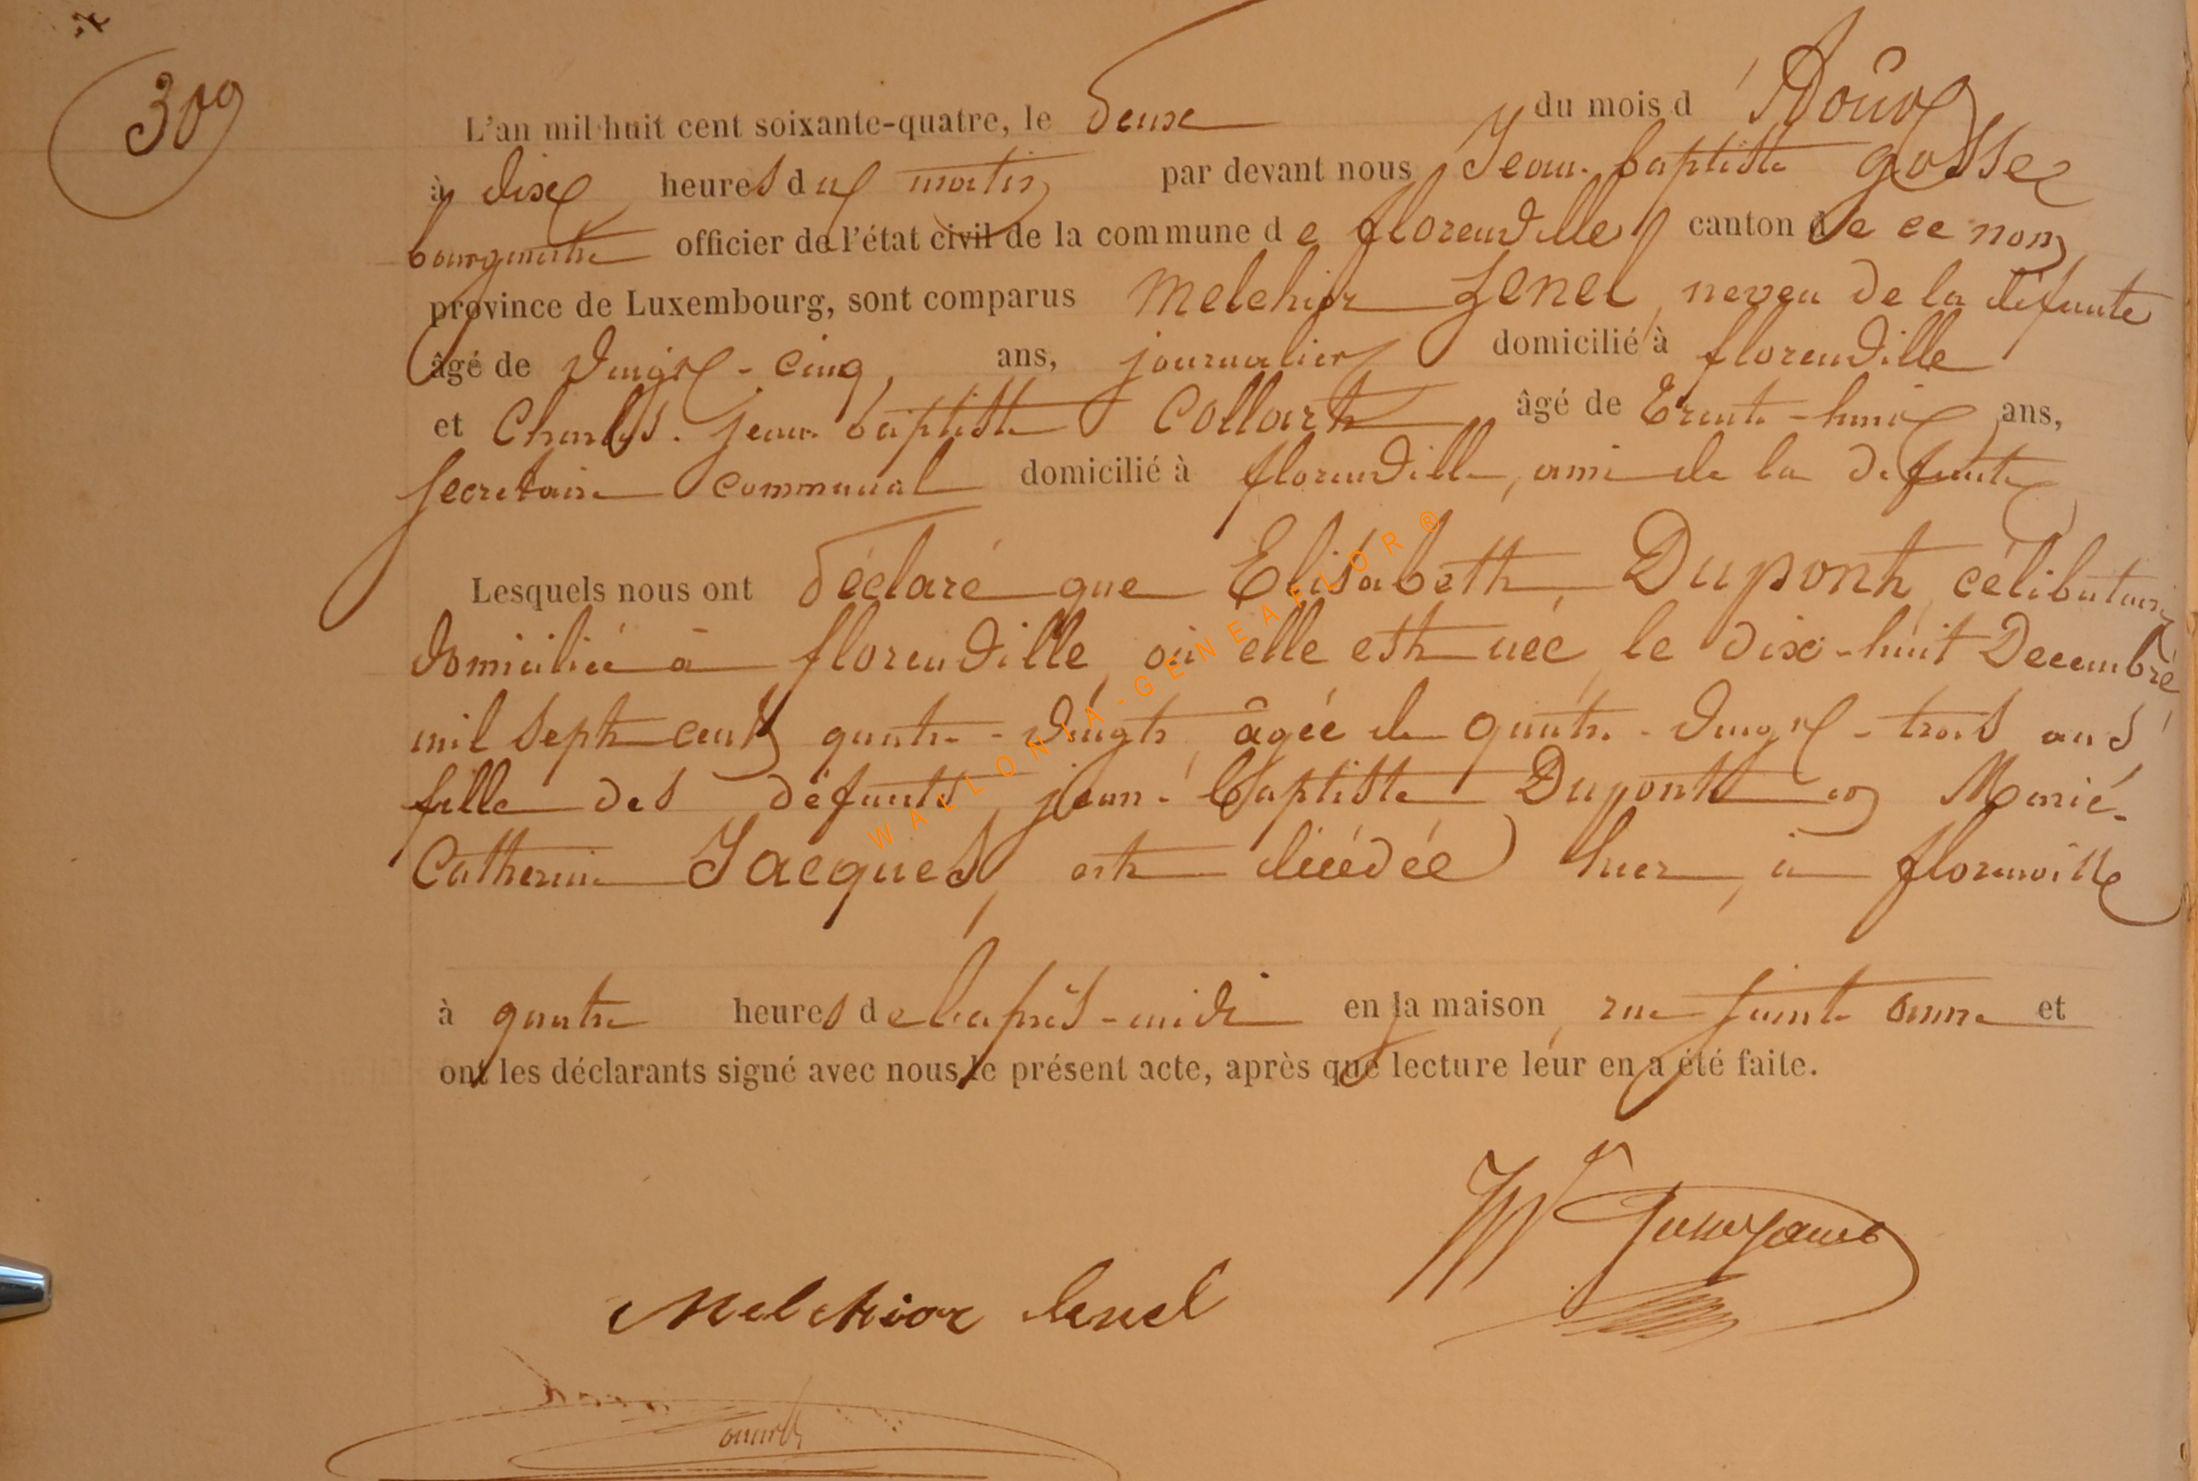 309
L'an mil huit cent soixante-quatre, le deux du mois d'Août
à dix heures du matin par devant nous Jean-baptiste gosse
bourgmestre officier de l'état civil de la commune de florenville canton de ce nom
province de Luxembourg, sont comparus Melchior Lenel, neveu de la défunte
âgé de vingt-cinq ans, journalier domicilié à florenville
et Charles-jean baptiste Collart âgé de trente-huit ans,
secretaire communal domicilié à florenville, ami de la defunte
Lesquels nous ont déclaré que Elisabeth Dupont, célibataire
domiciliée à florenville, où elle est née, le dix-huit Decembre
mil sept cent quatre-vingt, âgée de quatre-vingt-trois ans,
fille des défunts jean-Baptiste Dupont et Marie-
Catherine Jacques, est décédée hier, à florenville
à quatre heures de l'après-midi en la maison, rue sainte anne et
ont les déclarants signé avec nous le présent acte, après que lecture leur en a été faite.
Melchior lenel
WALLONIA-GENEAFLOR ®